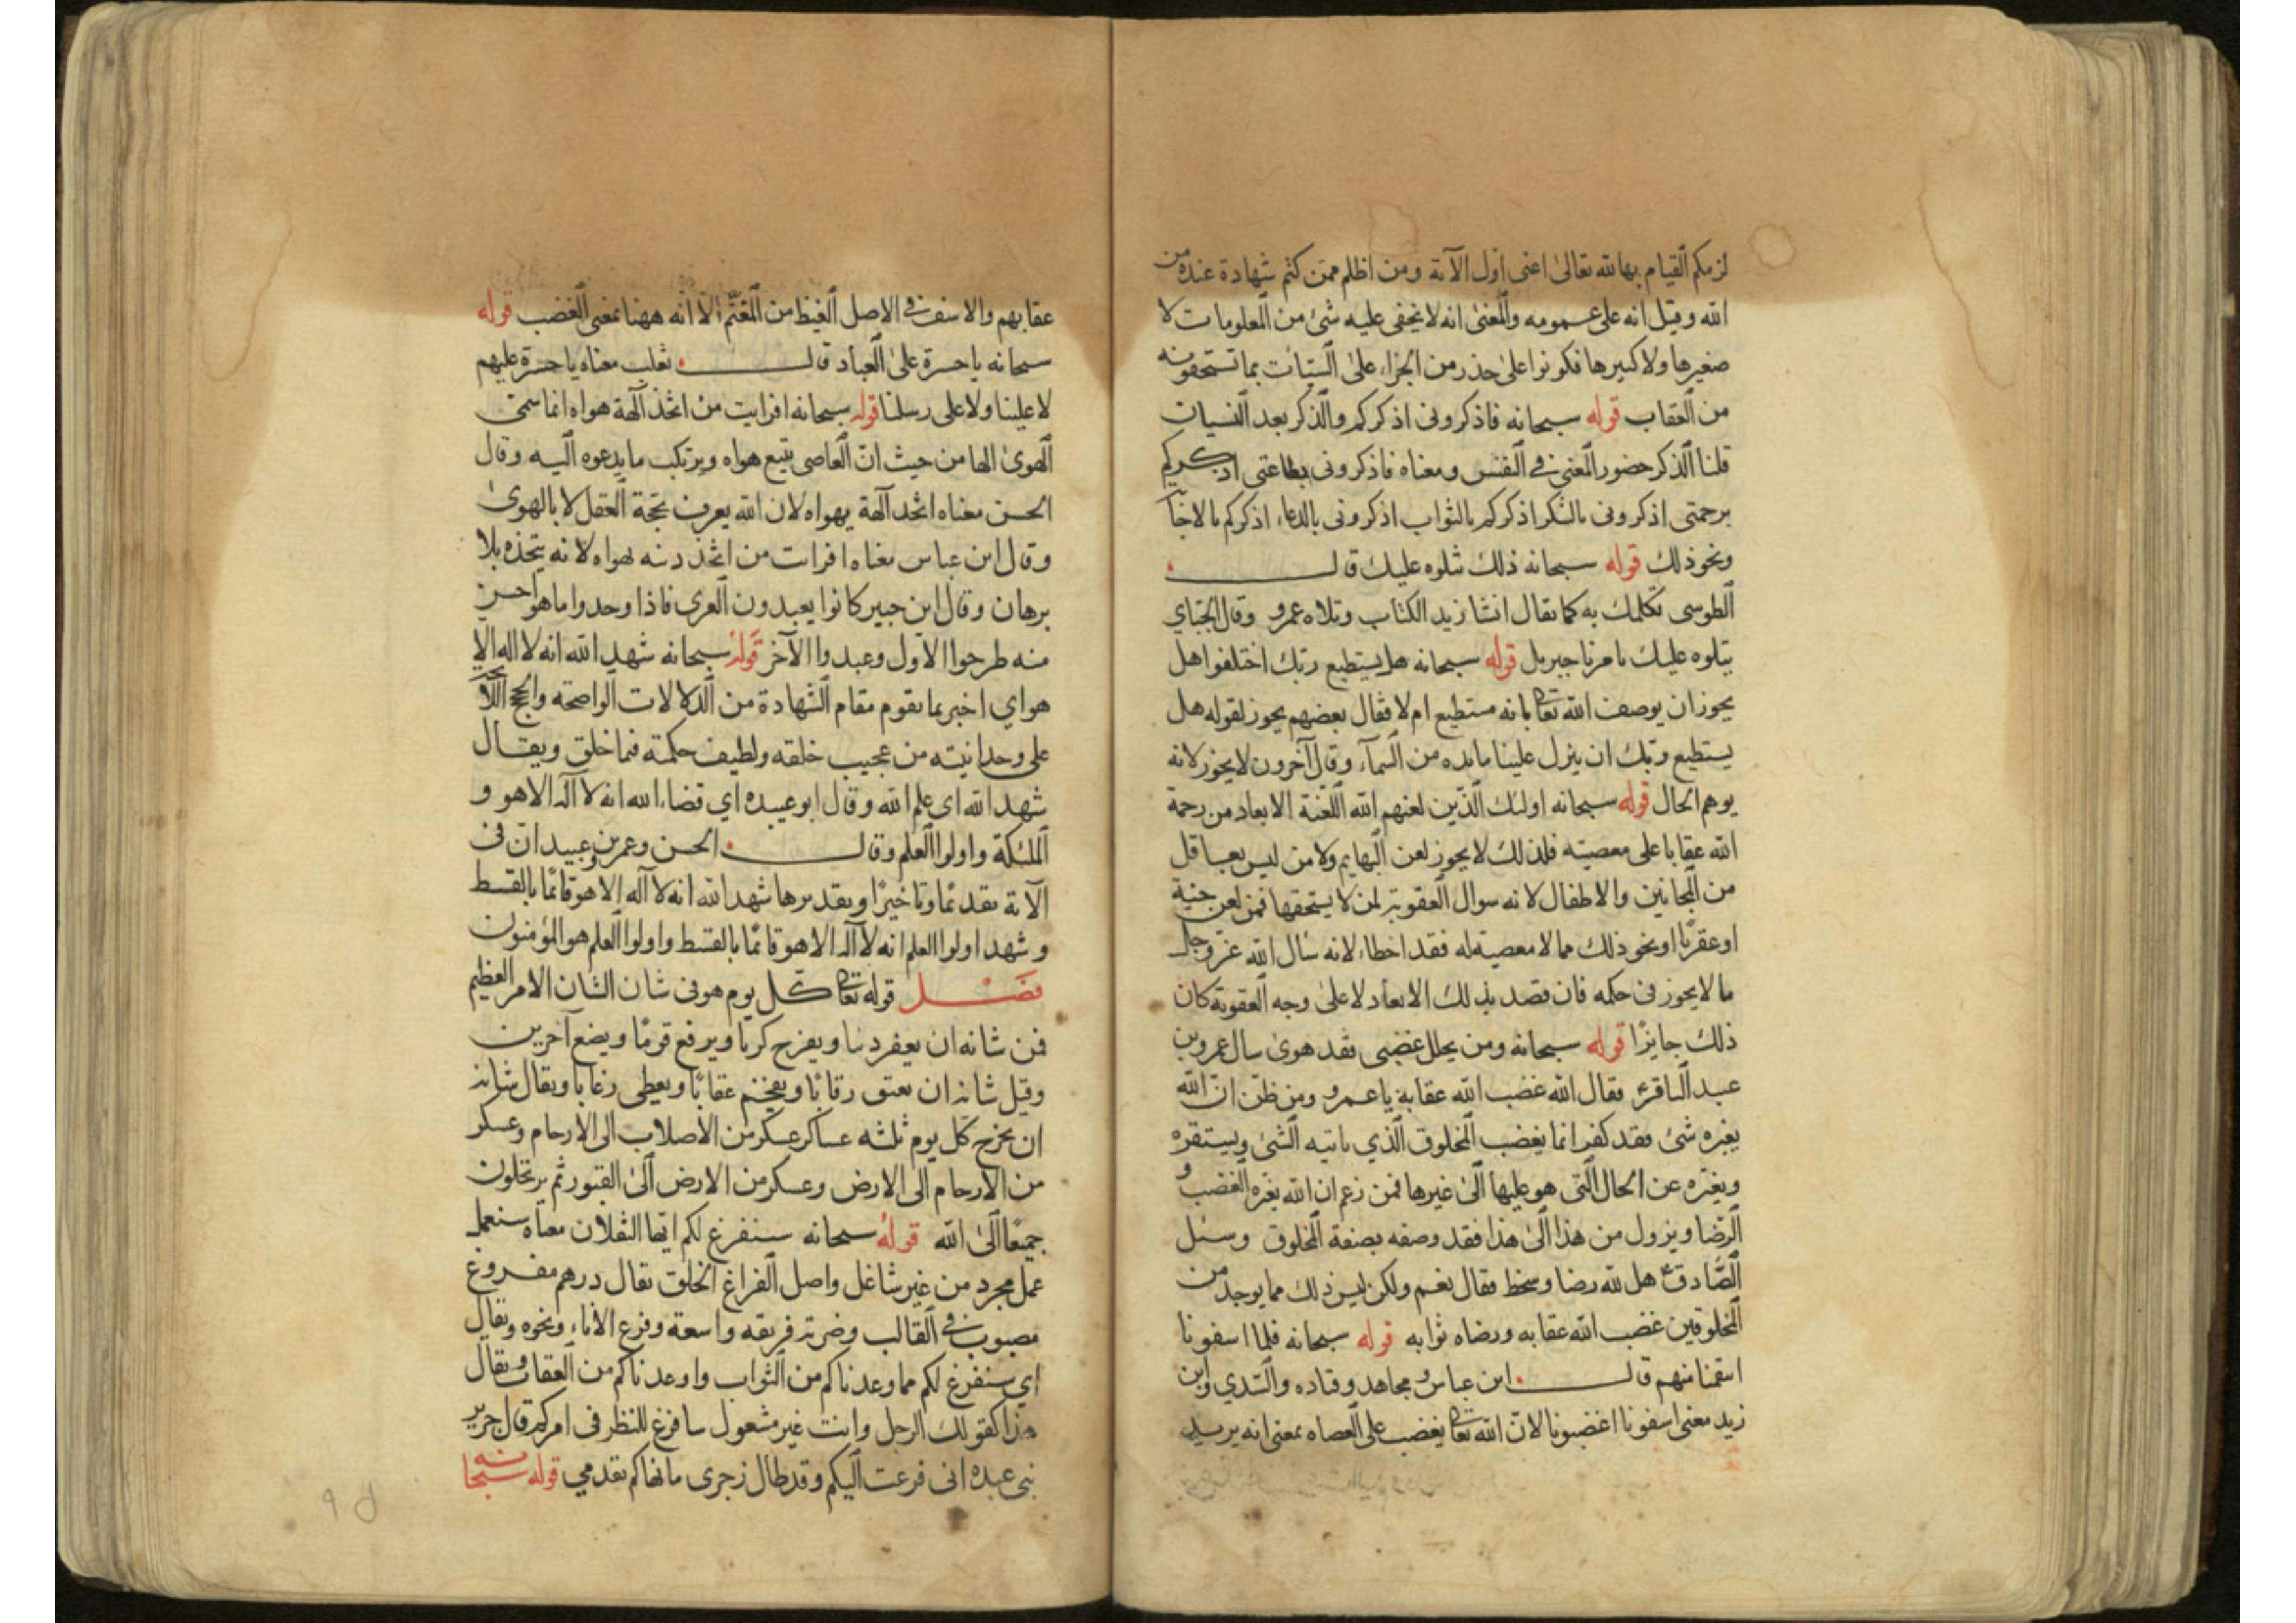 لزمكم القيام بها لله تعالى اعنى اول الآية ومن اظلم ممن كتم شهادة عنده من
الله وقيل انه على عمومه والمعنى انه لا يخفى عليه شئ من المعلومات لا
صغيرها ولا كبيرها فكونوا على حذر من الجزاء على السيئات بما تستحقونه
من العقاب قوله سبحانه فاذكرونى اذكركم والذكر بعد النسيان
قلنا الذكر حضور المعنى فى النفس ومعناه فاذكرونى بطاعتى اذكركم
برحمتى اذكرونى بالشكر اذكركم بالثواب اذكرونى بالدعاء اذكركم بالاجابـ
ونحو ذلك قوله سبحانه ذلك نتلوه عليك قال
الطوسى نكلمك به كما يقال انشا زيد الكتاب وتلاه عمرو وقال الجبّاي
يتلوه عليك بامرنا جبريل قوله سبحانه هل يستطيع ربك اختلفوا هل
يجوز ان يوصف الله تعا بانه مستطيع ام لا فقال بعضهم يجوز لقوله هل
يستطيع ربك ان ينزل علينا مايده من السماء وقال آخرون لا يجوز لانه
يوهم الحال قوله سبحانه اولئك الذين لعنهم الله اللعنة الابعاد من رحمة
الله عقابا على معصيته فلذلك لا يجوز لعن البهايم ولا من ليس بعاقل
من المجانين والاطفال لانه سوال العقوبة لمن لا يستحقها فمن لعن حية
او عقربًا او نحو ذلك مما لا معصية له فقد اخطاء لانه سال الله عز وجل
ما لا يجوز فى حكمه فان قصد بذلك الابعاد لا على وجه العقوبة كان
ذلك جايزًا قوله سبحانه ومن يحلل غضبى فقد هوى سال عمرو بن
عبيد الباقر ع فقال الله غضب الله عقابه يا عمرو ومن ظن ان الله
يغيره شئ فقد كفر انما يغضب المخلوق الذي ياتيه الشئ ويستقره
ويغيره عن الحال التى هو عليها الى غيرها فمن زعم ان الله يغيره الغضب و
الرضا ويزول من هذا الى هذا فقد وصفه بصفة المخلوق وسئل
الصادق ع هل لله رضا وسخط فقال نعم ولكن ليس ذلك مما يوجد من
المخلوقين غضب الله عقابه ورضاه ثوابه قوله سبحانه فلما اسفونا
انتقمنا منهم قال ابن عباس و مجاهد وقتاده والسدي وابن
زيد معنى اسفونا اغضبونا لان الله تعا يغضب على العصاه بمعنى انه يريد
عقابهم والاسف فى الاصل الغيظ من المغتم الا انه ههنا بمعنى الغضب قوله
سبحانه ياحسرة على العباد قال ثعلب معناه ياحسرة عليهم
لا علينا ولا على رسلنا قوله سبحانه افرايت من اتخذ آلهة هواه انما سمى
الهوى الها من حيث ان العاصى يتبع هواه ويرتكب ما يدعوه اليه وقال
الحسن معناه اتخذ آلهة بهواه لان الله يعرف بحجة العقل لا بالهوى
وقال ابن عباس معناه افرايت من اتخذ دينه بهواه لانه يتخذه بلا
برهان وقال ابن جبير كانوا يعبدون العزى فاذا وجدوا ما هو احسن
منه طرحوا الاول وعبدوا الآخر قوله سبحانه شهد الله انه لا اله الا
هو اي اخبر بما يقوم مقام الشهادة من الدلالات الواضحه والحجج اللايحة
على وحدانيته من عجيب خلقه ولطيف حكمته فيما خلق ويقال
شهد الله اى علم الله وقال ابو عبيده اي قضاء الله انه لا آله الا هو و
الملئكة واولوا العلم وقال الحسن وعمر بن وعبيد ان فى
الآية تقديمًا وتاخيرًا وتقديرها شهد الله انه لا آله الا هو قائمًا بالقسط
وشهد اولوا العلم انه لا آله الا هو قائمًا بالقسط واولوا العلم هو المؤمنون
فصل قوله تعا كل يوم هو فى شان الشان الامر العظيم
فمن شانه ان يغفر ذنبا ويفرج كربا ويرفع قومًا ويضع آخرين
وقيل شانه ان يعتق رقابًا ويفخم عقابًا ويعطى رغابا ويقال شانه
ان يخرج كل يوم ثلثه عساكر عسكر من الاصلاب الى الارحام وعسكر
من الارحام الى الارض وعسكر من الارض الى القبور ثم يرتحلون
جميعًا الى الله قوله سبحانه سنفرغ لكم ايها الثقلان معناه سنعمل
عمل مجرد من غير شاغل واصل الفراغ الخلق يقال درهم مفروغ
مصبوب فى القالب وضربة فريغه واسعة وفرغ الاناء ونحوه ويقال
اي سنفرغ لكم مما وعدناكم من الثواب واوعدناكم من العقاب ويقال
هذا كقولك الرجل وانت غير مشغول سافرغ للنظر فى امركم قال جرير
بنى عبده انى فرغت اليكم وقد طال زجرى ما نهاكم تقدمي قوله سبحانه